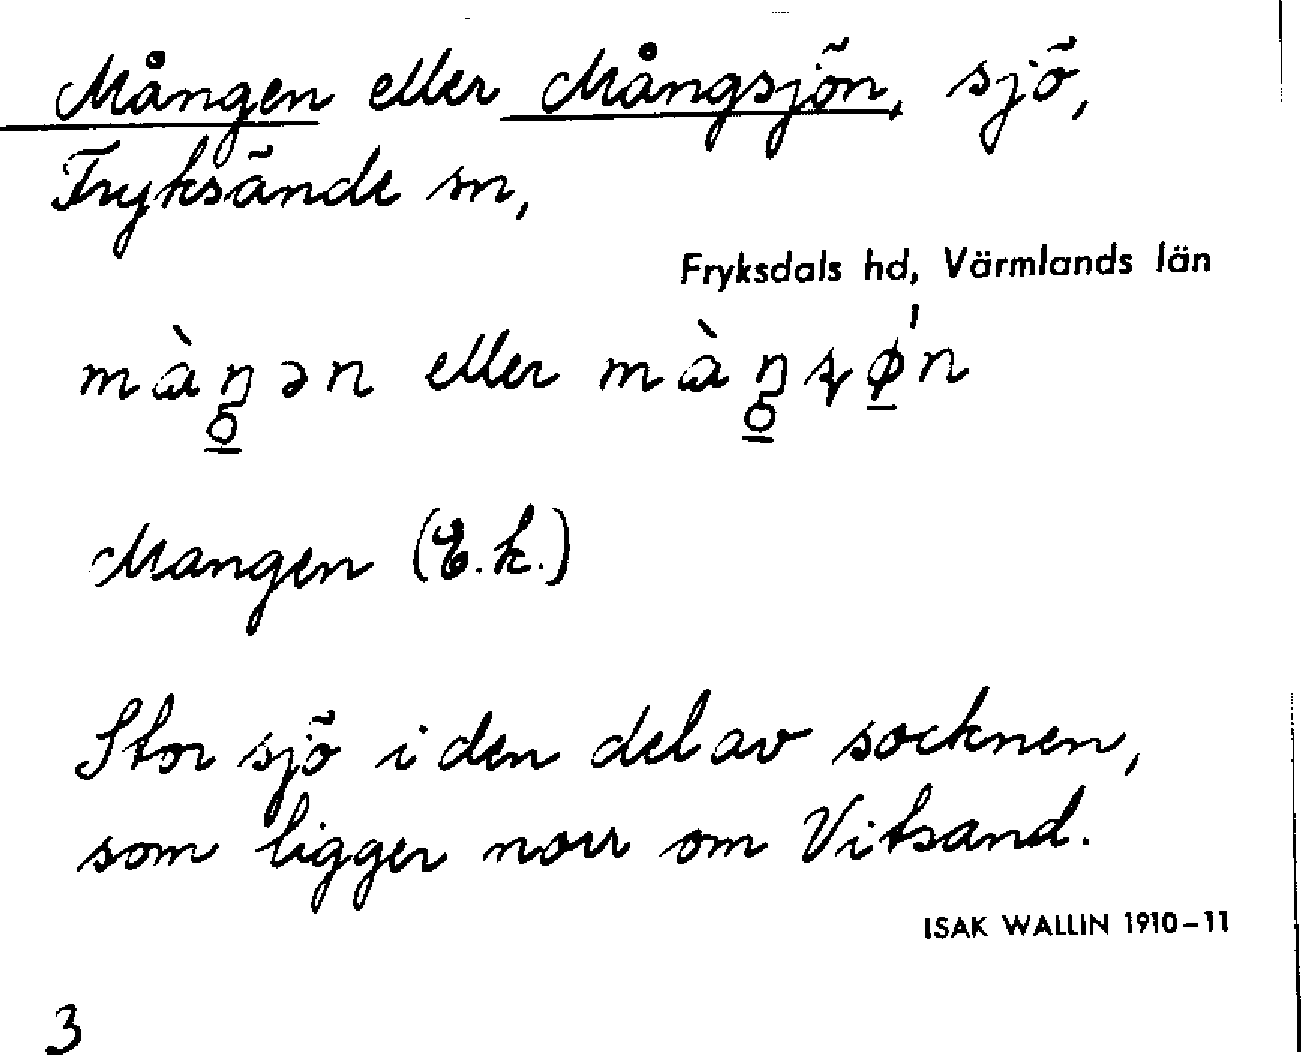 Mången eller Mångsjön, sjö,
Fryksände sn,
Fryksdals hd, Värmlands län
mɑ̀ŋən eller
Mangen (E.k.)
Stor sjö i den del av socknen,
som ligger norr om Vitsand.
ISAK WALLIN 1910–11
3